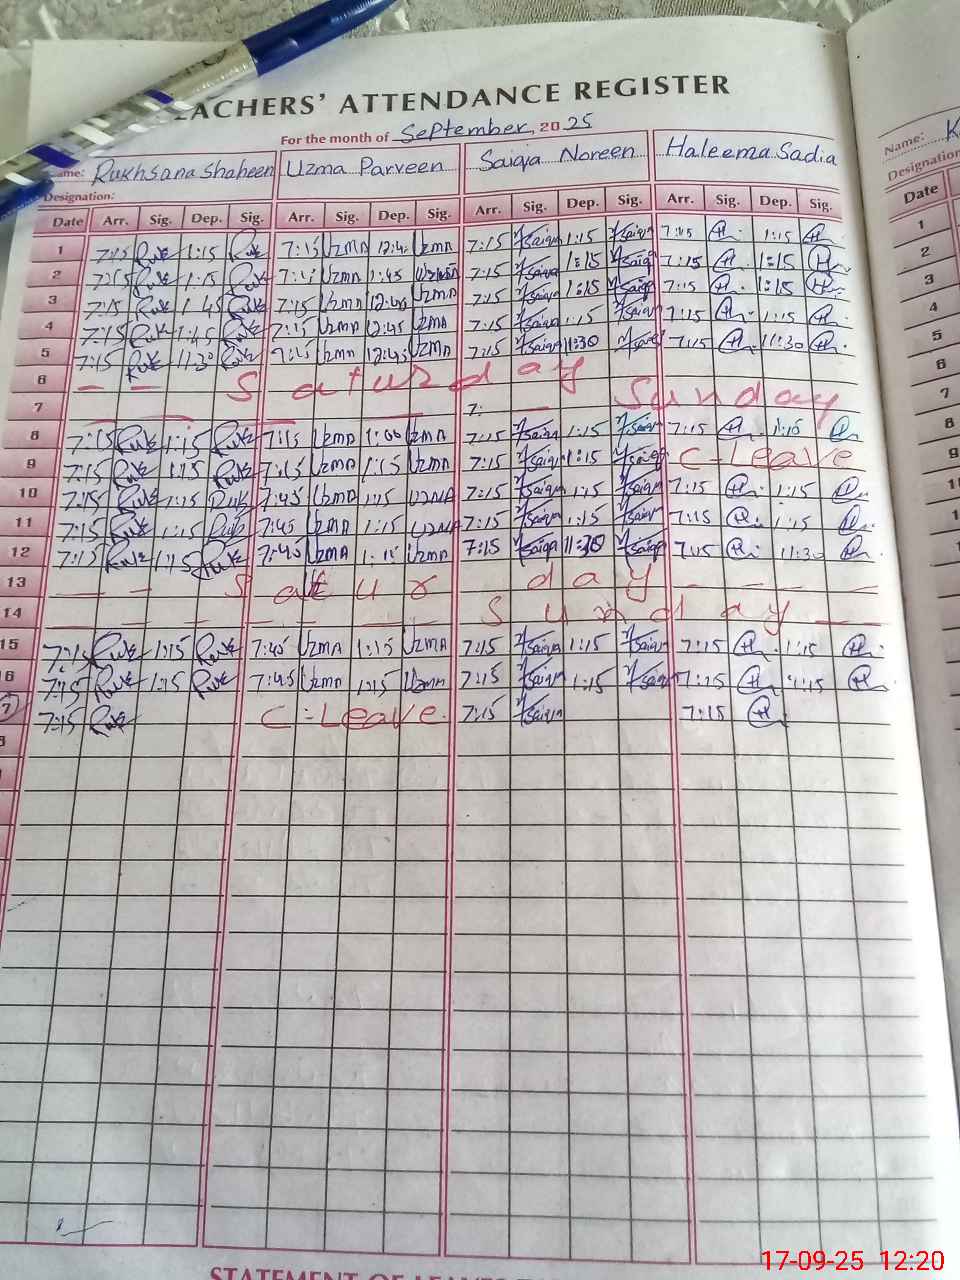 TEACHERS' ATTENDANCE REGISTER
For the month of September, 2025
Name: Rukhsana Shaheen Uzma Parveen Saiqa Noreen Haleema Sadia
Designation:
Date Arr. Sig. Dep. Sig. Arr. Sig. Dep. Sig. Arr. Sig. Dep. Sig. Arr. Sig. Dep. Sig.
1 7:15 Ruk 1:15 Ruk 7:15 Uzma 12:45 Uzma 7:15 Saiqa 1:15 Saiqa 7:15 1:15
2 7:15 Ruk 1:15 Ruk Uzma 1:45 Uzma 7:15 Saiqa 1:15 Saiqa 7:15 1:15
3 7:15 Ruk 1:45 Ruk 7:15 Uzma Uzma 7:15 Saiqa 1:15 Saiqa 7:15 1:15
4 7:15 Ruk 1:45 Ruk 7:15 Uzma 12:45 Uzma 7:15 Saiqa 1:15 Saiqa 7:15 1:15
5 7:15 Ruk 11:30 Ruk Uzma 12:45 Uzma 7:15 Saiqa 11:30 Saiqa 7:15 11:30
6 Saturday
7 7: Sunday
8 7:15 Ruk 1:15 Ruk 7:15 Uzma 1:00 Uzma 7:15 Saiqa 1:15 Saiqa 7:15 1:15
9 7:15 Ruk 1:15 Ruk 7:15 Uzma 1:15 Uzma 7:15 Saiqa 1:15 Saiqa C-Leave
10 7:15 Ruk 1:15 Ruk 7:45 Uzma 1:15 Uzma 7:15 Saiqa 1:15 Saiqa 7:15 1:15
11 7:15 Ruk 1:15 Ruk 7:45 Uzma 1:15 Uzma 7:15 Saiqa 1:15 Saiqa 7:15 1:15
12 7:15 Ruk 1:15 Ruk 7:45 Uzma Uzma 7:15 Saiqa 11:30 Saiqa 7:15 11:30
13 Saturday
14 Sunday
15 7:15 Ruk 1:15 Ruk 7:45 Uzma 1:15 Uzma 7:15 Saiqa 1:15 Saiqa 7:15 1:15
16 7:15 Ruk 1:15 Ruk 7:45 Uzma 1:15 Uzma 7:15 Saiqa 1:15 Saiqa 7:15 1:15
17 7:15 Ruk C-Leave. 7:15 Saiqa 7:15
Name: K
Designation
Date
1
2
3
4
5
6
7
8
9
17-09-25 12:20